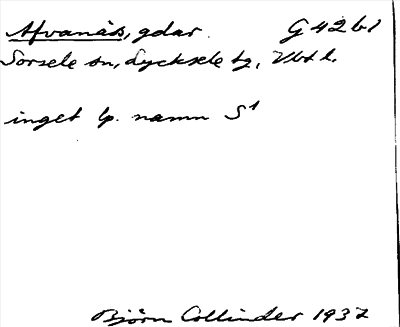 Afvanäs, gdar. G 42 b1
Sorsele sn, Lycksele tg, Vbt l.
inget lp. namn S¹
Björn Collinder 1937